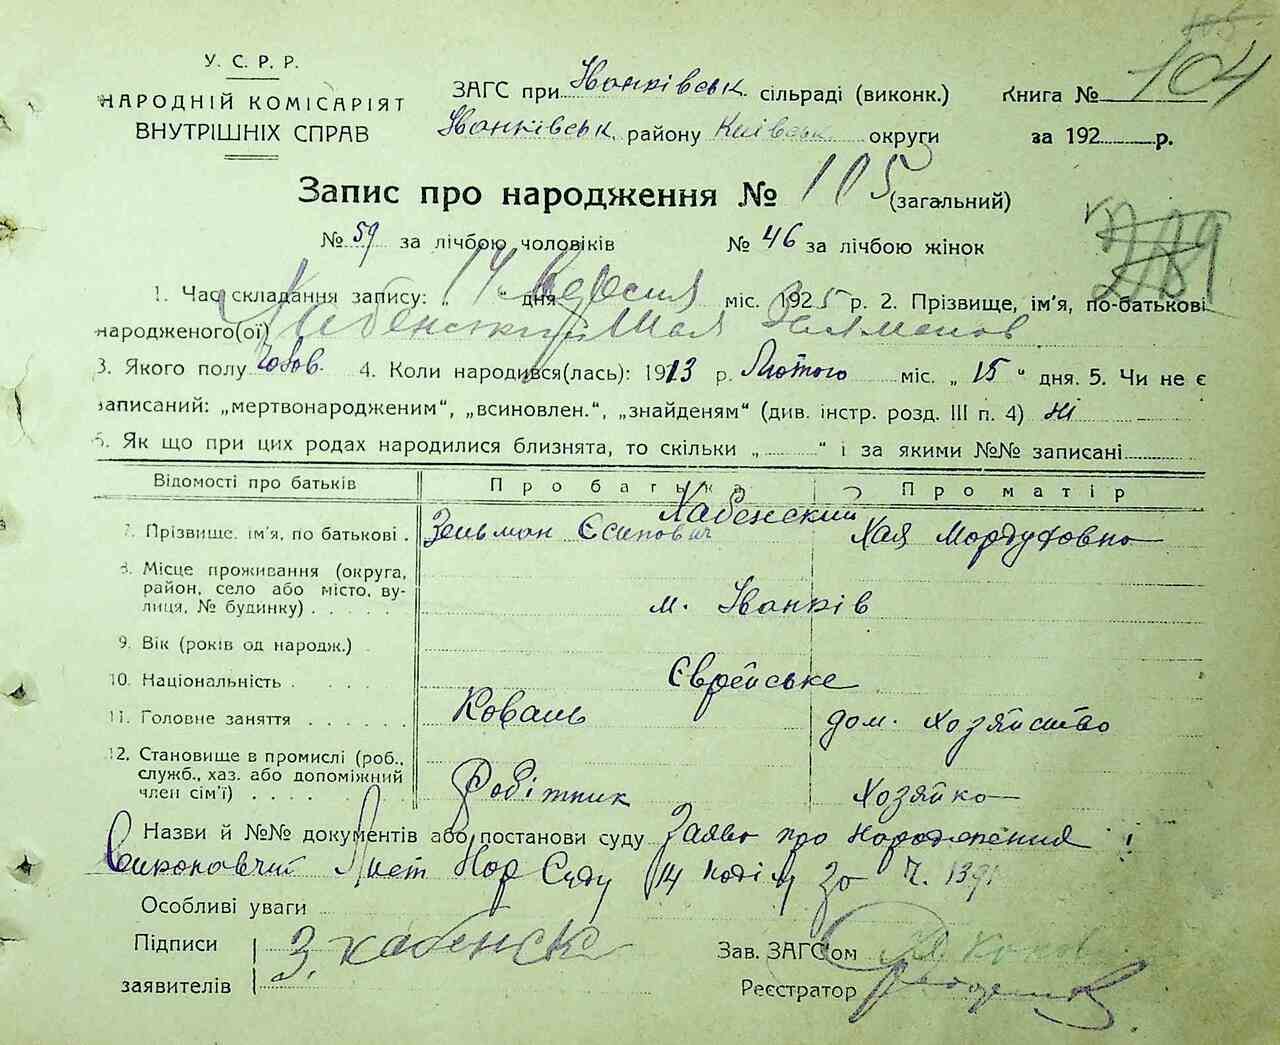 104
У. С. Р. Р.
НАРОДНІЙ КОМІСАРІЯТ
ВНУТРІШНІХ СПРАВ
ЗАГС при Іванківськ. сільраді (виконк.)
Іванківськ. району Київськ. округи
Книга №
за 192 р.
Запис про народження № 105 (загальний)
№ 59 за лічбою чоловіків № 46 за лічбою жінок
1. Час складання запису: „ 14 " дня Вересня міс. 1925 р. 2. Прізвище, ім'я, по-батькові
народженого(ої) Хабенський
3. Якого полу Чолов. 4. Коли народився(лась): 1913 р. Лютого міс. „ 15 " дня. 5. Чи не є
записаний: „мертвонародженим", „всиновлен.", „знайденям" (див. інстр. розд. III п. 4) ні
6. Як що при цих родах народилися близнята, то скільки „ " і за якими №№ записані
Відомості про батьків Про батька Про матір
7. Прізвище, ім'я, по батькові . Зельман Єсипович Хабенский Хая Мордуховна
8. Місце проживання (округа,
район, село або місто, ву-
лиця, № будинку) . . . . . м. Іванків
9. Вік (років од народж.)
10. Національність . . . . . Єврейське
11. Головне заняття . . . . . . Коваль дом. хозяйство
12. Становище в промислі (роб.,
служб., хаз. або допоміжний
член сім'ї) . . . . . Робітник Хозяйка
Назви й №№ документів або постанови суду Заява про народження
Виконавчий Лист Нар Суду 14
Особливі уваги
Підписи
заявителів
З. Хабенск
Зав. ЗАГС'ом
Реєстратор